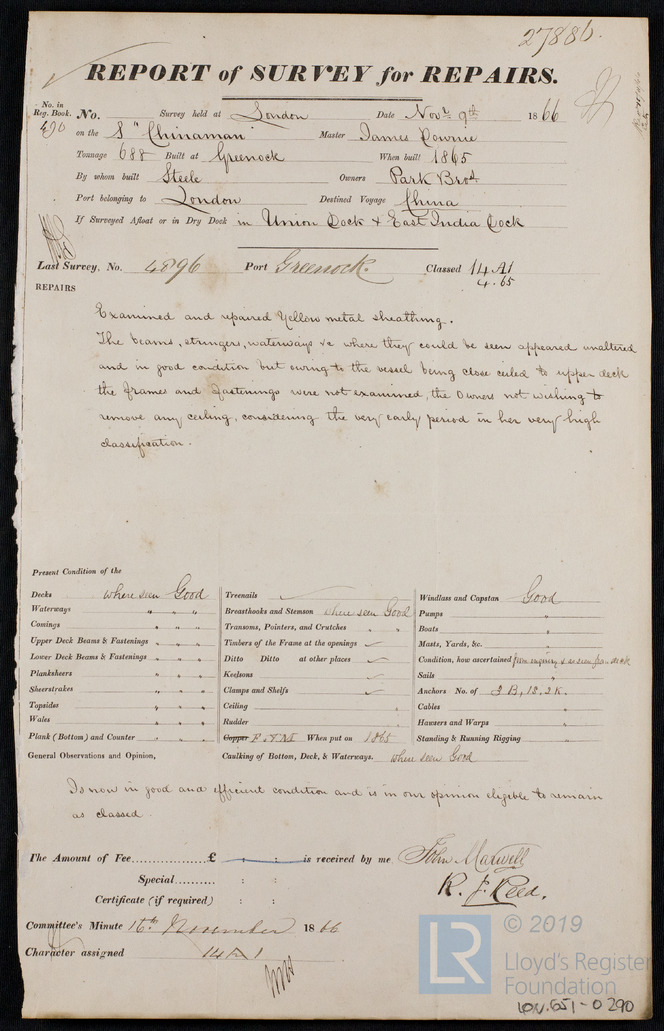 27886.
REPORT of SURVEY for REPAIRS.
No. in Reg. Book.
No. Survey held at London Date Novr 9th 1866
490 on the S "Chinaman" Master James Downie
Tonnage 688 Built at Greenock When built 1865
By whom built Steele Owners Park Bros
Port belonging to London Destined Voyage China
If Surveyed Afloat or in Dry Dock in Union Dock & East India Dock
Last Survey, No. 4896 Port Greenock. Classed 14 A1
4.65
REPAIRS
Examined and repaired Yellow metal sheathing.
The beams, stringers, waterways &c where they could be seen appeared unaltered
and in good condition but owing to the vessel being close ceiled to upper deck
the frames and fastenings were not examined, the Owners not wishing to
remove any ceiling, considering the very early period in her very high
classification.
Present Condition of the
Decks where seen Good
Waterways " " "
Comings " " "
Upper Deck Beams & Fastenings " " "
Lower Deck Beams & Fastenings " " "
Planksheers " " "
Sheerstrakes " " "
Topsides " " "
Wales " " "
Plank (Bottom) and Counter " " "
General Observations and Opinion,
Treenails
Breasthooks and Stemson where seen Good
Transoms, Pointers, and Crutches " "
Timbers of the Frame at the openings
Ditto Ditto at other places
Keelsons
Clamps and Shelfs
Ceiling
Rudder
Copper When put on 1865
Caulking of Bottom, Deck, & Waterways. where seen Good
Windlass and Capstan Good
Pumps "
Boats "
Masts, Yards, &c. "
Condition, how ascertained from enquiry & as seen from deck
Sails "
Anchors No. of 3 B, 1 S, 2 K.
Cables "
Hawsers and Warps "
Standing & Running Rigging "
Is now in good and efficient condition and is in our opinion eligible to remain
as classed
The Amount of Fee............... £ : : is received by me John Maxwell
Special.......... : : R. J. Reed.
Certificate (if required) : :
Committee's Minute 16th November 1866
Character assigned 14 A 1
LR © 2019
Lloyd's Register
Foundation
LON.651-0290